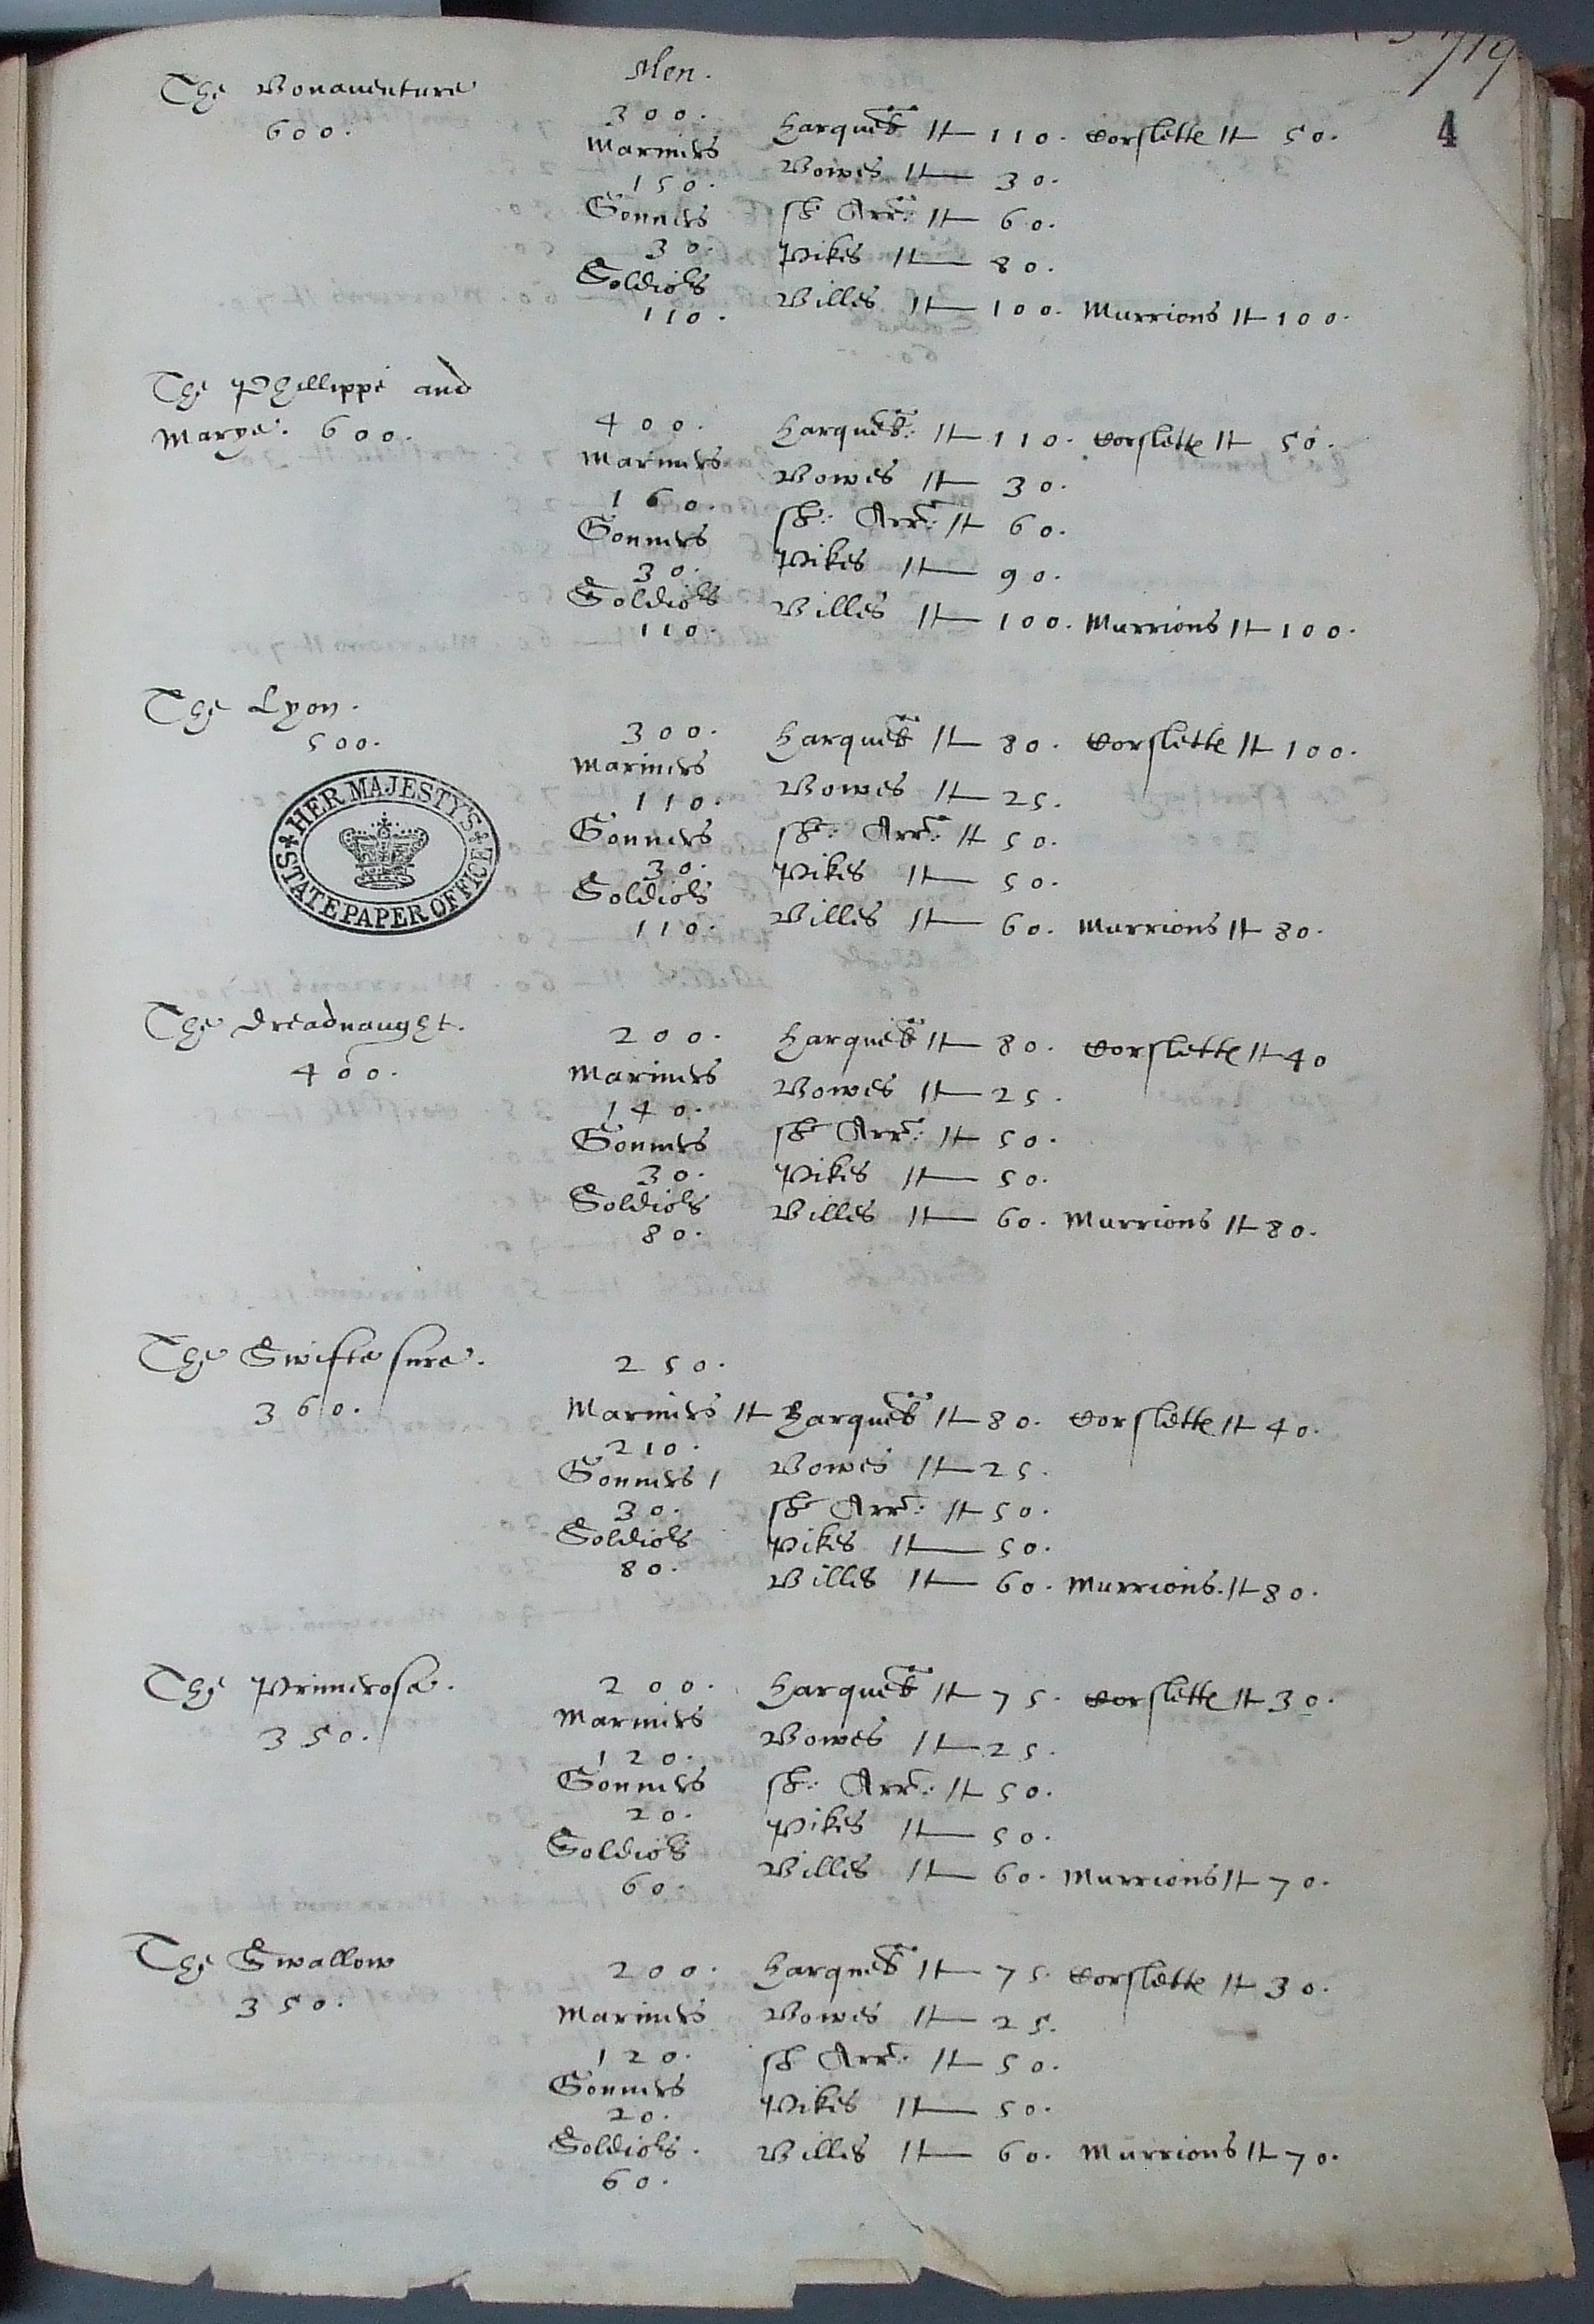 Men.
The Bonaventure
600.
300.
Marin͠rs
150.
Gonn͠rs
30.
Soldio͠rs
110.
Harqueb͠ 110. Corslette 50.
Bowes 30.
sh͠ Arr͠: 60.
Pikes 80.
Billes 100. Murrions 100.
The Phillippe and
Marye. 600.
400.
Marin͠rs
160.
Gonn͠rs
30.
Soldio͠rs
110.
Harqueb͠: 110. Corslette 50.
Bowes 30.
sh͠: Arr͠: 60.
Pikes 90.
Billes 100. Murrions 100.
The Lyon.
500.
HER MAJESTY'S
STATE PAPER OFFICE
300.
Marin͠rs
110.
Gonn͠rs
30.
Soldio͠rs
110.
Harqueb͠ 80. Corslette 100.
Bowes 25.
sh͠: Arr͠: 50.
Pikes 50.
Billes 60. Murrions 80.
The dreadnaught.
400.
200.
Marin͠rs
140.
Gonn͠rs
30.
Soldio͠rs
80.
Harqueb͠ 80. Corslette 40
Bowes 25.
sh͠ Arr͠: 50.
Pikes 50.
Billes 60. Murrions 80.
The Swifte sure.
360.
250.
Marin͠rs
210.
Gonn͠rs
30.
Soldio͠rs
80.
Harqueb͠ 80. Corslette 40.
Bowes 25.
sh͠ Arr͠: 50.
Pikes 50.
Billes 60. Murrions. 80.
The Primerose.
350.
200.
Marin͠rs
120.
Gonn͠rs
20.
Soldio͠rs
60.
Harqueb͠ 75. Corslette 30.
Bowes 25.
sh͠: Arr͠: 50.
Pikes 50.
Billes 60. Murrions 70.
The Swallow
350.
200.
Marin͠rs
120.
Gonn͠rs
20.
Soldio͠rs.
60.
Harqueb͠ 75. Corslette 30.
Bowes 25.
sh͠ Arr͠: 50.
Pikes 50.
Billes 60. Murrions 70.
4